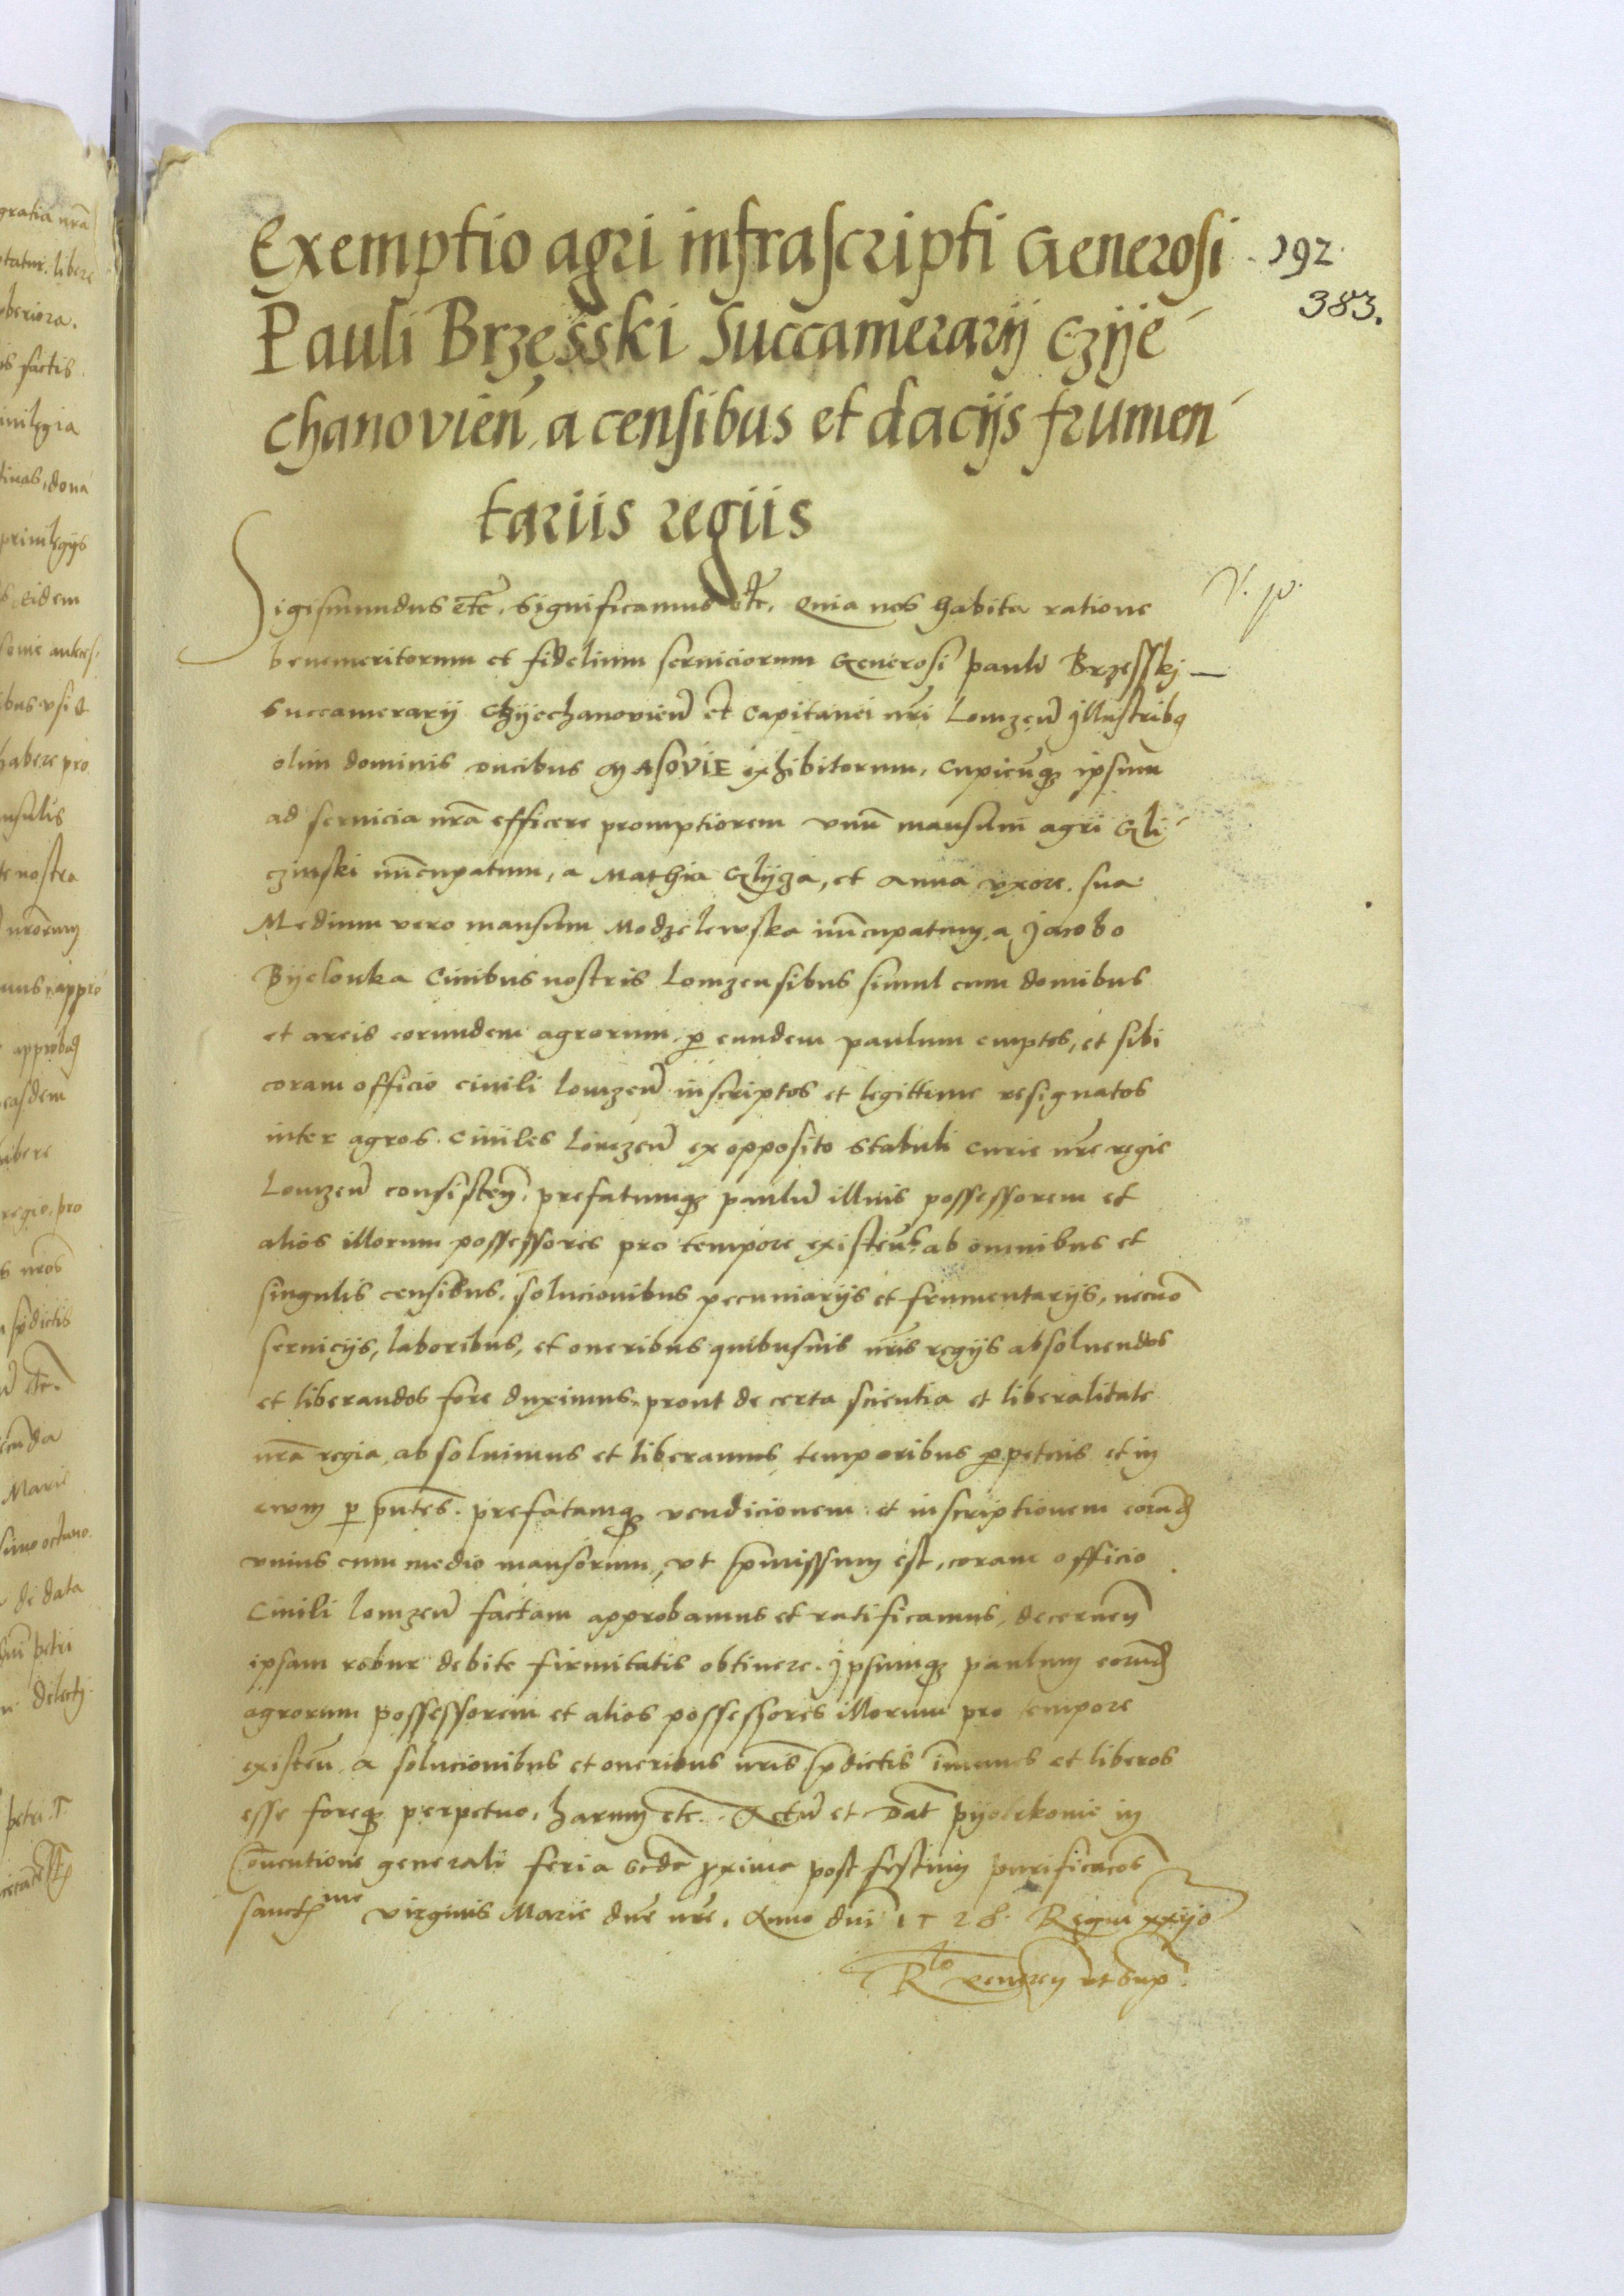 Exemptio agri infrascripti Generosi
192
383.
Pauli Brzęsski Succamerarij Czije
chanovień, a censibus et dacijs frumen
tariis regiis
Sigismundus etc̃, significamus etc̃, Quia nos habita ratione
V. p.
benemeritorum et fidelium seruiciorum Generosi pauli Brzesskj
succamerarij Czijechanovień et Capitanei nr̃i Lomzeñ Jllustribꝫ
olim dominis ducibus MASOVIE exhibitorum, Cupieñqꝫ ipsum
ad seruicia nr̃a efficere promptiorem vnũ mansum agri Gli
czinski nũcupatum, a Mathia Glijza, et Anna vxore sua
Medium vero mansum Modzelewska nũcupatum, a Jacobo
Bijelonka Ciuibus nostris Lomzensibus simul cum domibus
et areis eorundem agrorum, ꝑ eundem paulum emptos, et sibi
coram officio ciuili Lomzeñ inscriptos et legittime resignatos
inter agros Ciuiles Lomzeñ ex opposito stabuli curie nr̃e regie
Lomzeñ consisteñ, prefatumqꝫ paulũ illius possessorem et
alios illorum possessores pro tempore existeñ, ab omnibus et
singulis censibus, solucionibus pecuniarijs et frumentarijs, necnõ
seruicijs, laboribus, et oneribus quibusuis nr̃is regijs absoluendos
et liberandos fore duximus, prout de certa scientia et liberalitate
nr̃a regia, absoluimus et liberamus temporibus ꝑpetuis et in
ewm ꝑ pñtes. prefatamqꝫ vendicionem et inscriptionem eorũd
vnius cum medio mansorum, vt p̃missum est, coram officio
Ciuili Lomzeñ factam approbamus et ratificamus, decerneñ
ipsam robur debite firmitatis obtinere. Jpsumqꝫ paulum eorũd
agrorum possessorem et alios possessores illorum pro tempore
existeñ, a solucionibus et oneribus nr̃is p̃dictis ĩmunes et liberos
esse foreqꝫ perpetuo, harum etc̃. Actũ et Dat̃ pijotrkovie in
Cõuentione generali feria secda ꝓxima post festum purificacõis
sanctme virginis Marie dñe nr̃e, Anno dnĩ 1528. Regni xxijo
Rlo veneñ vt sup